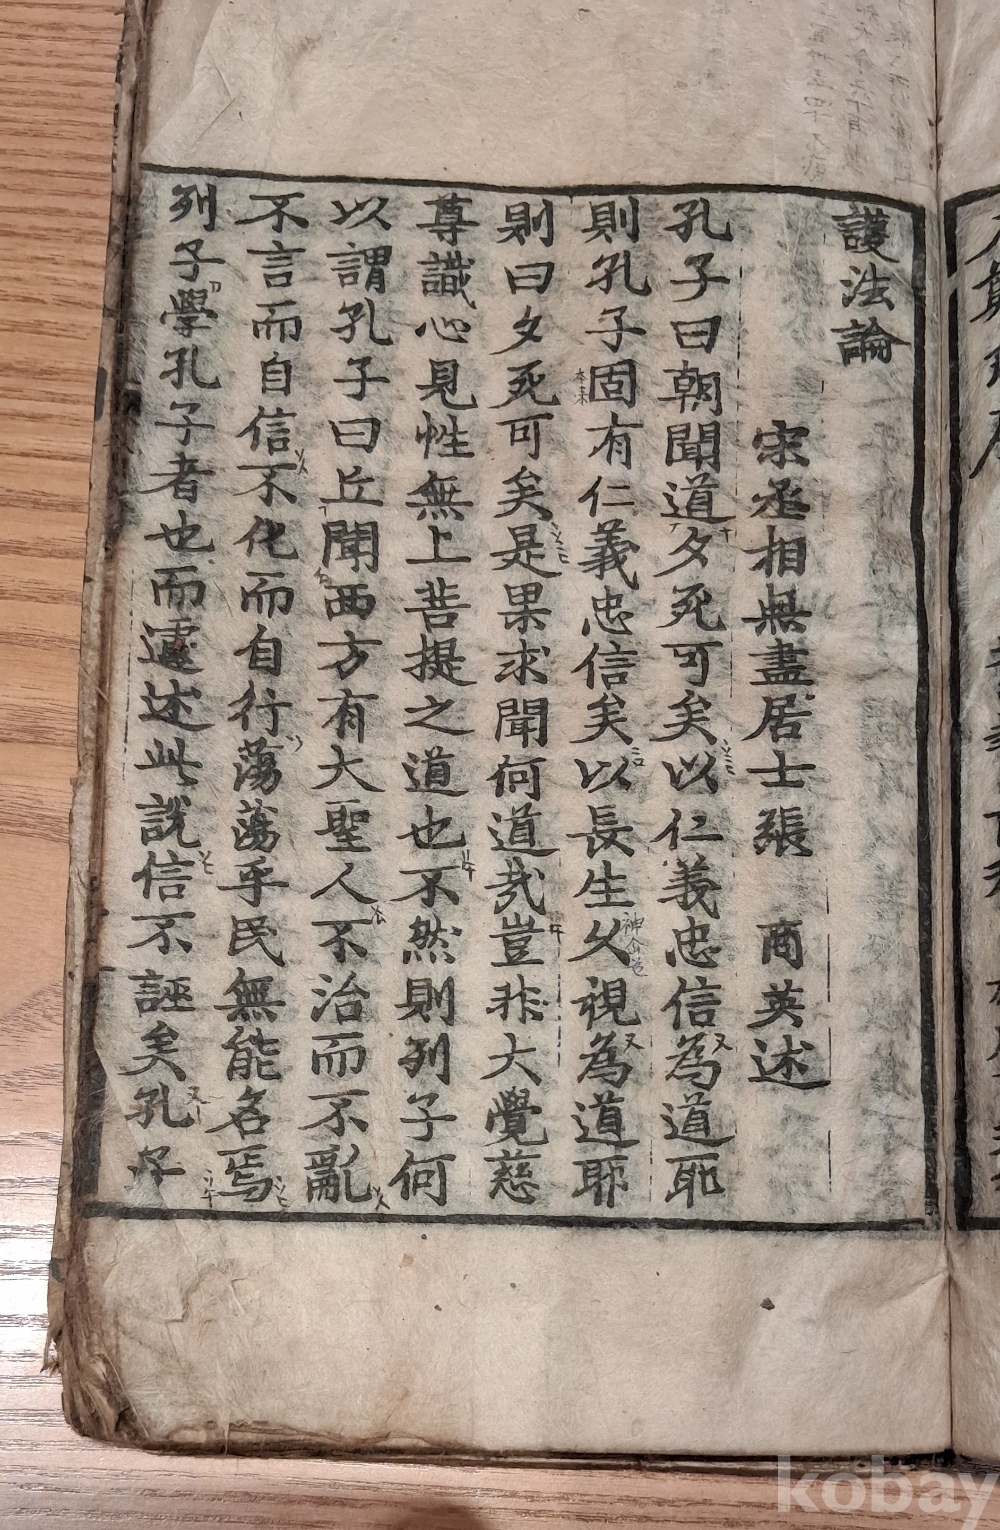 護法論
宋丞相無盡居士張 商英述
孔子曰朝聞道夕死可矣以仁義忠信為道耶
則孔子固有仁義忠信矣以長生久視為道耶
則曰夕死可矣是果求聞何道哉豈非大覺慈
尊識心見性無上菩提之道也不然則列子何
以謂孔子曰丘聞西方有大聖人不治而不亂
不言而自信不化而自行蕩蕩乎民無能名焉
列子學孔子者也而遽述此說信不誣矣孔子
kobay